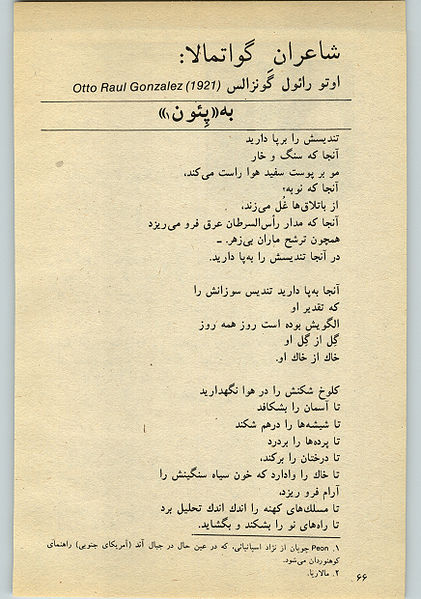 شاعرانِ گواتمالا:
اوتو رائول گونزالس Otto Raul Gonzalez (1921)
به«پِئون۱»
تندیسش را برپا دارید
آنجا که سنگ و خار
مو بر پوست سفید هوا راست می‌کند،
آنجا که نوبه۲
از باتلاق‌ها غُل می‌زند،
آنجا که مدار رأس‌السرطان عرق فرو می‌ریزد
همچون ترشح ماران بی‌زهر. ـ
در آنجا تندیسش را به‌پا دارید.
آنجا به‌پا دارید تندیس سوزانش را
که تقدیر او
الگویش بوده است روز همه روز
گِل از گِل او
خاك از خاك او.
کلوخ شکنش را در هوا نگهدارید
تا آسمان را بشکافد
تا شیشه‌ها را درهم شکند
تا پرده‌ها را بردرد
تا درختان را برکند،
تا خاك را وادارد که خون سیاه سنگینش را
آرام فرو ریزد،
تا مسلك‌های کهنه را اندك اندك تحلیل برد
تا راه‌های نو را بشکند و بگشاید.
۱. Peon چوپان از نژاد اسپانیائی، که در عین حال در جبال آند (آمریکای جنوبی) راهنمای
کوهنوردان می‌شود.
۲. مالاریا.
۶۶